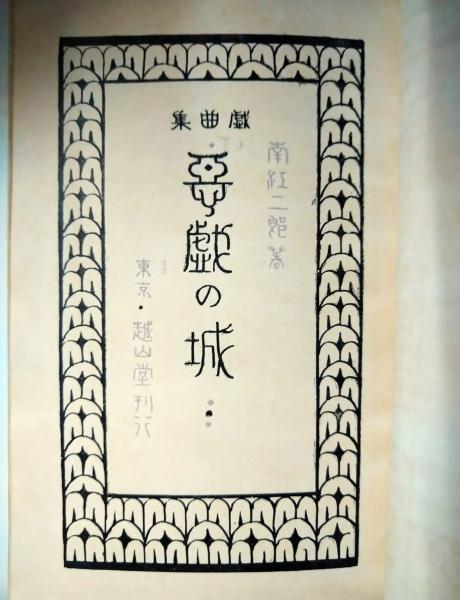 戯曲集
南江二郎著
悪戯の城
東京・越山堂刊行